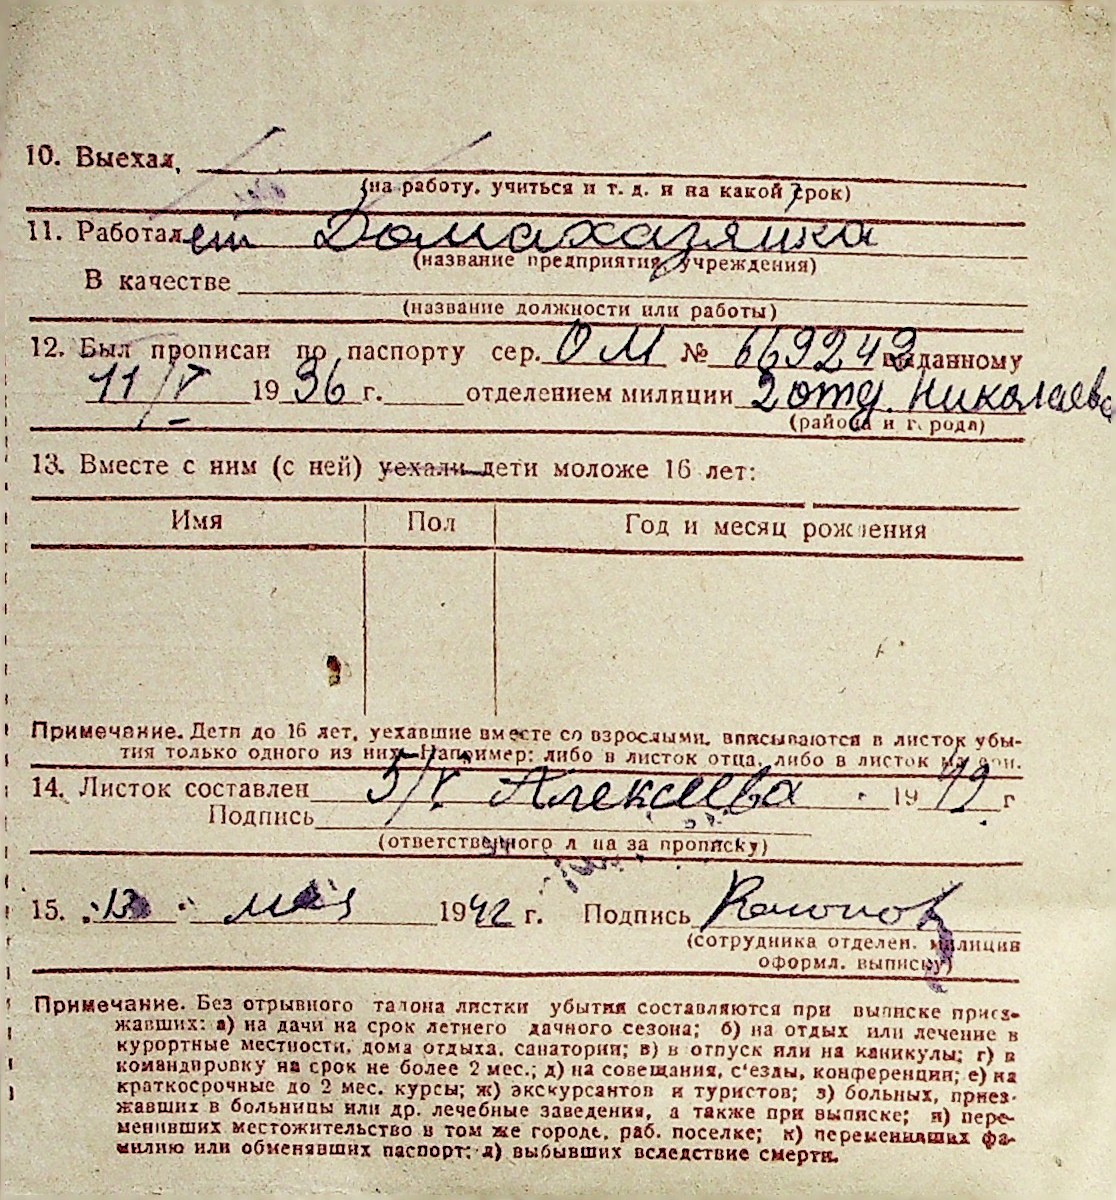 10. Выехал
(на работу, учиться и т. д. и на какой срок)
11. Работал ет Домахазяйка
(название предприятия, учреждения)
В качестве
(название должности или работы)
12. Был прописан по паспорту сер. ОМ № 669242 выданному
11/V 1936 г. отделением милиции 2 отд. Николаева
(района и города)
13. Вместе с ним (с ней) уехали дети моложе 16 лет:
Имя Пол Год и месяц рождения
Примечание. Дети до 16 лет, уехавшие вместе со взрослыми, вписываются в листок убы-
тия только одного из них. Например: либо в листок отца, либо в листок матери.
14. Листок составлен 5/V Алексеева 19 г
Подпись
(ответственного лица за прописку)
15. 13 мая 1942 г. Подпись
(сотрудника отделен. милиции
оформл. выписку)
Примечание. Без отрывного талона листки убытия составляются при выписке приез-
жавших: а) на дачи на срок летнего дачного сезона; б) на отдых или лечение в
курортные местности, дома отдыха, санатории; в) в отпуск или на каникулы; г) в
командировку на срок не более 2 мес.; д) на совещания, с'езды, конференции; е) на
краткосрочные до 2 мес. курсы; ж) экскурсантов и туристов; з) больных, приез-
жавших в больницы или др. лечебные заведения, а также при выписке; и) пере-
менивших местожительство в том же городе, раб. поселке; к) переменивших фа-
милию или обменявших паспорт; л) выбывших вследствие смерти.